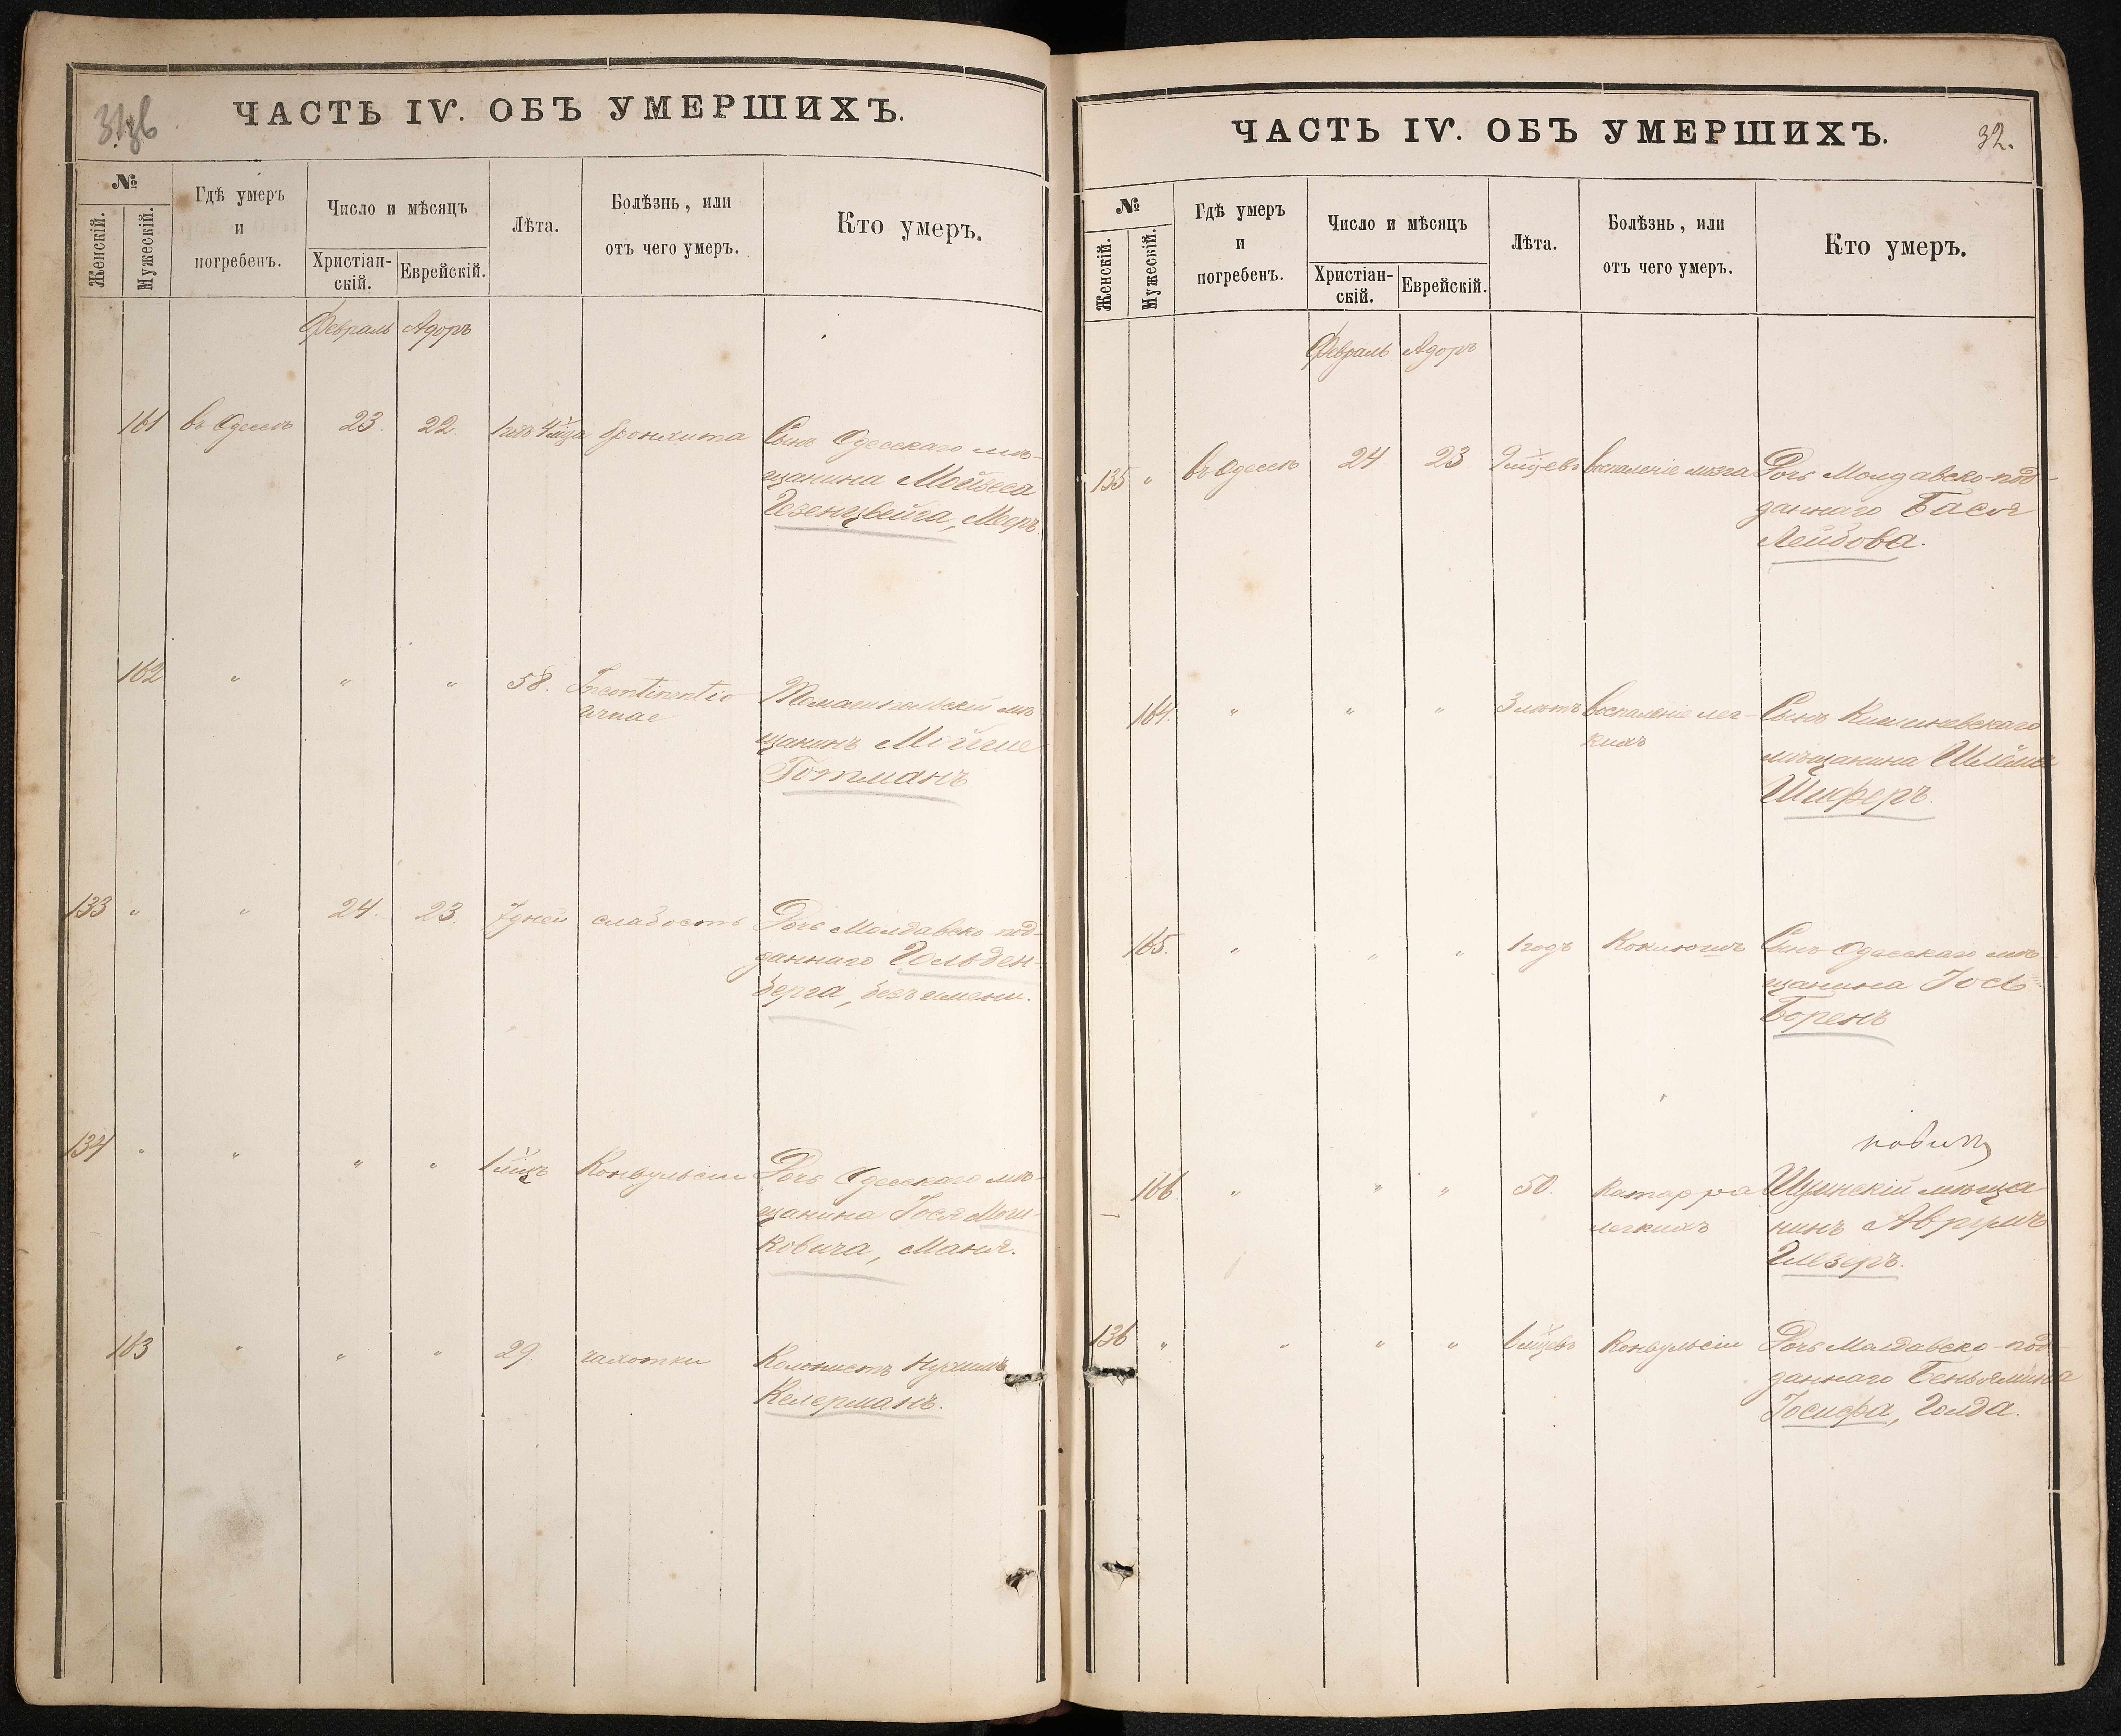 ЧАСТЬ IV. ОБЪ УМЕРШИХЪ.
№
Женскій.
Мужескій.
Гдѣ умеръ
и
погребенъ.
Число и мѣсяцъ
Христіан-
скій.
Еврейскій.
Лѣта.
Болѣзнь, или
отъ чего умеръ.
Кто умеръ.
Февраль Адоръ
161 въ Одессѣ 23. 22. 1 годъ 4 м-ца бронхита Сынъ Одесскаго мѣ-
щанина Мойсея
Розенцвейга, Меръ.
162 " " " 58. Incontinentio Томашпольскій мѣ-
urnae щанинъ Мойше
Готманъ
133 " " 24. 23. 7 дней слабость Дочь Молдавско-под-
даннаго Гольден-
берга, безъ имени.
134 " " " " 1 м-цъ Конвульсіи Дочь Одесскаго мѣ-
щанина Іося Мош-
ковича, Маня.
163 " " " 29. чахотки Колонистъ Нухимъ
Келерманъ.
ЧАСТЬ IV. ОБЪ УМЕРШИХЪ.
32.
№
Женскій.
Мужескій.
Гдѣ умеръ
и
погребенъ.
Число и мѣсяцъ
Христіан-
скій.
Еврейскій.
Лѣта.
Болѣзнь, или
отъ чего умеръ.
Кто умеръ.
Февраль Адоръ
135 " въ Одессѣ 24 23 9 м-цевъ воспаленіе мозга Дочь Молдавско-под-
даннаго Бася
Лейбова.
164. " " " 3 лѣтъ воспаленіе лег- Сынъ Кишиневскаго
кихъ мѣщанина Шлёма
Шиферъ.
165. " " " 1 годъ Коклюшъ Сынъ Одесскаго мѣ-
щанина Іось
Боренъ
166. " " " 50. катарра мѣща-
легкихъ нинъ Аврумъ
Глезеръ.
136 " " " " 6 м-цевъ Конвульсіи Дочь Молдавско-под-
даннаго Беньямина
Іосифа, Голда.